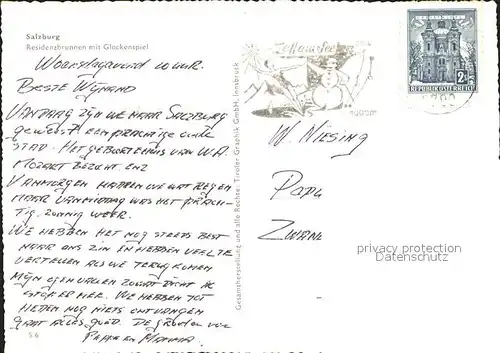 Salzburg
Residenzbrunnen mit Glockenspiel
Woensdagavond 10 uur.
Beste Wijnand
Vandaag zijn we naar Salzburg
geweest een prachtige oude
stad. Het geboortehuis van W.A.
Mozart bezocht. enz
Vanmorgen hadden we wat regen
maar vanmiddag was het prach-
tig zonnig weer.
We hebben het nog steeds best
naar ons zin en hebben veel te
vertellen als we terugkomen
Mijn ogen vallen zowat dicht ik
stop er mee. We hebben tot
heden nog niets ontvangen
gaat alles goed. De groeten van
Pappa en Mamma
56
Gesamtherstellung und alle Rechte: Tiroler Graphik GmbH, Innsbruck
Zell am See
REPUBLIK ÖSTERREICH
W. Niesing
privacy protection
Datenschutz